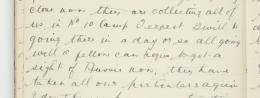 close now. they are collecting all of
us in No 10 Camp I expect I will be
going there in a day or so all going
well a fellow can begin to get a
sight of now, they have
taken all our particulars again